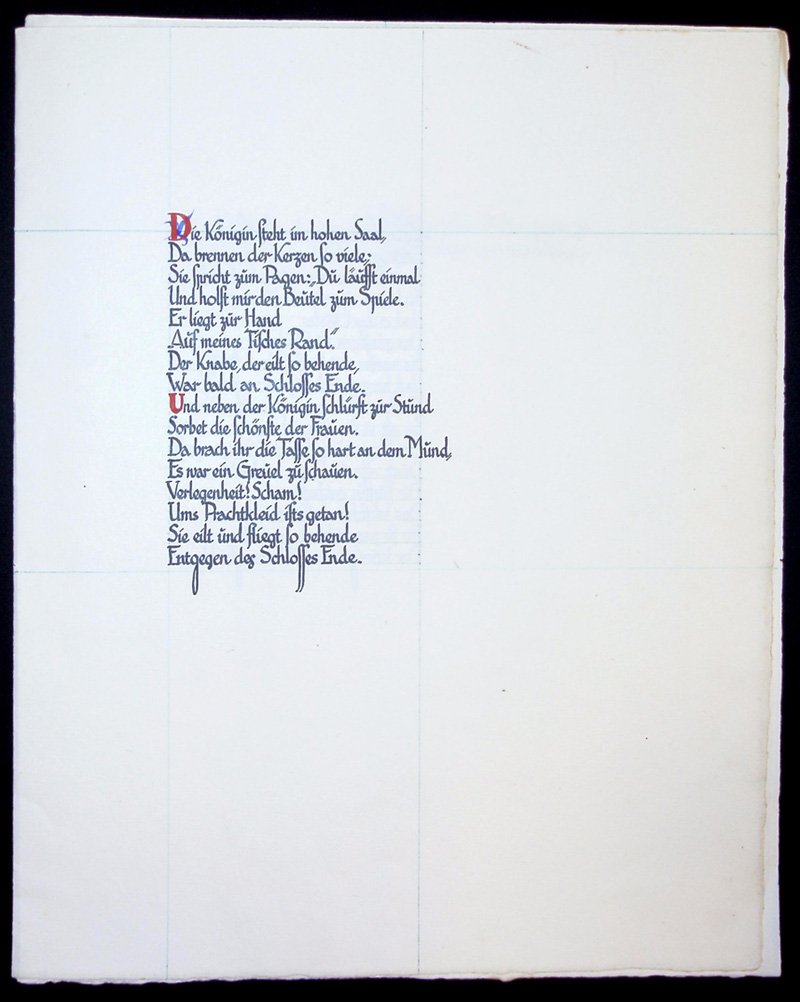 Die Königin steht im hohen Saal,
Da brennen der Kerzen so viele;
Sie spricht zum Pagen: „Du läuffst einmal
Und holst mir den Beutel zum Spiele.
Er liegt zur Hand
Auf meines Tisches Rand.“
Der Knabe, der eilt so behende,
War bald an Schlosses Ende.
Und neben der Königin schlürft zur Stund
Sorbet die schönste der Frauen.
Da brach ihr die Tasse so hart an dem Mund,
Es war ein Greuel zu schauen.
Verlegenheit! Scham!
Ums Prachtkleid ists getan!
Sie eilt und fliegt so behende
Entgegen des Schlosses Ende.